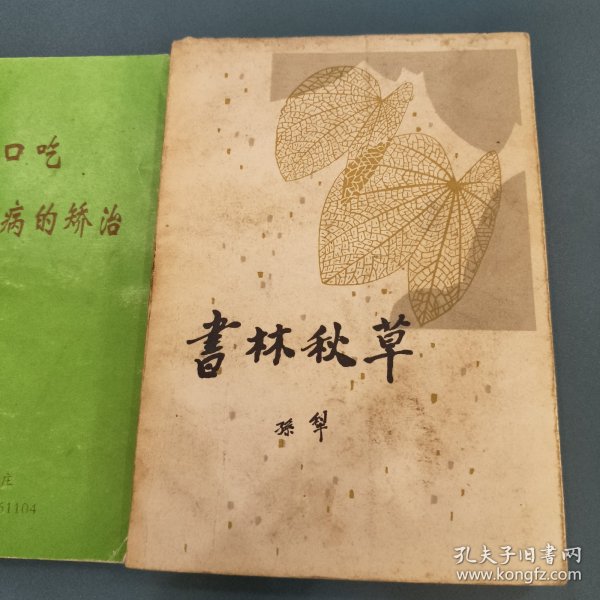 口吃
病的矫治
庄
61104
書林秋草
孫犁
孔夫子旧书网
www.kongfz.com